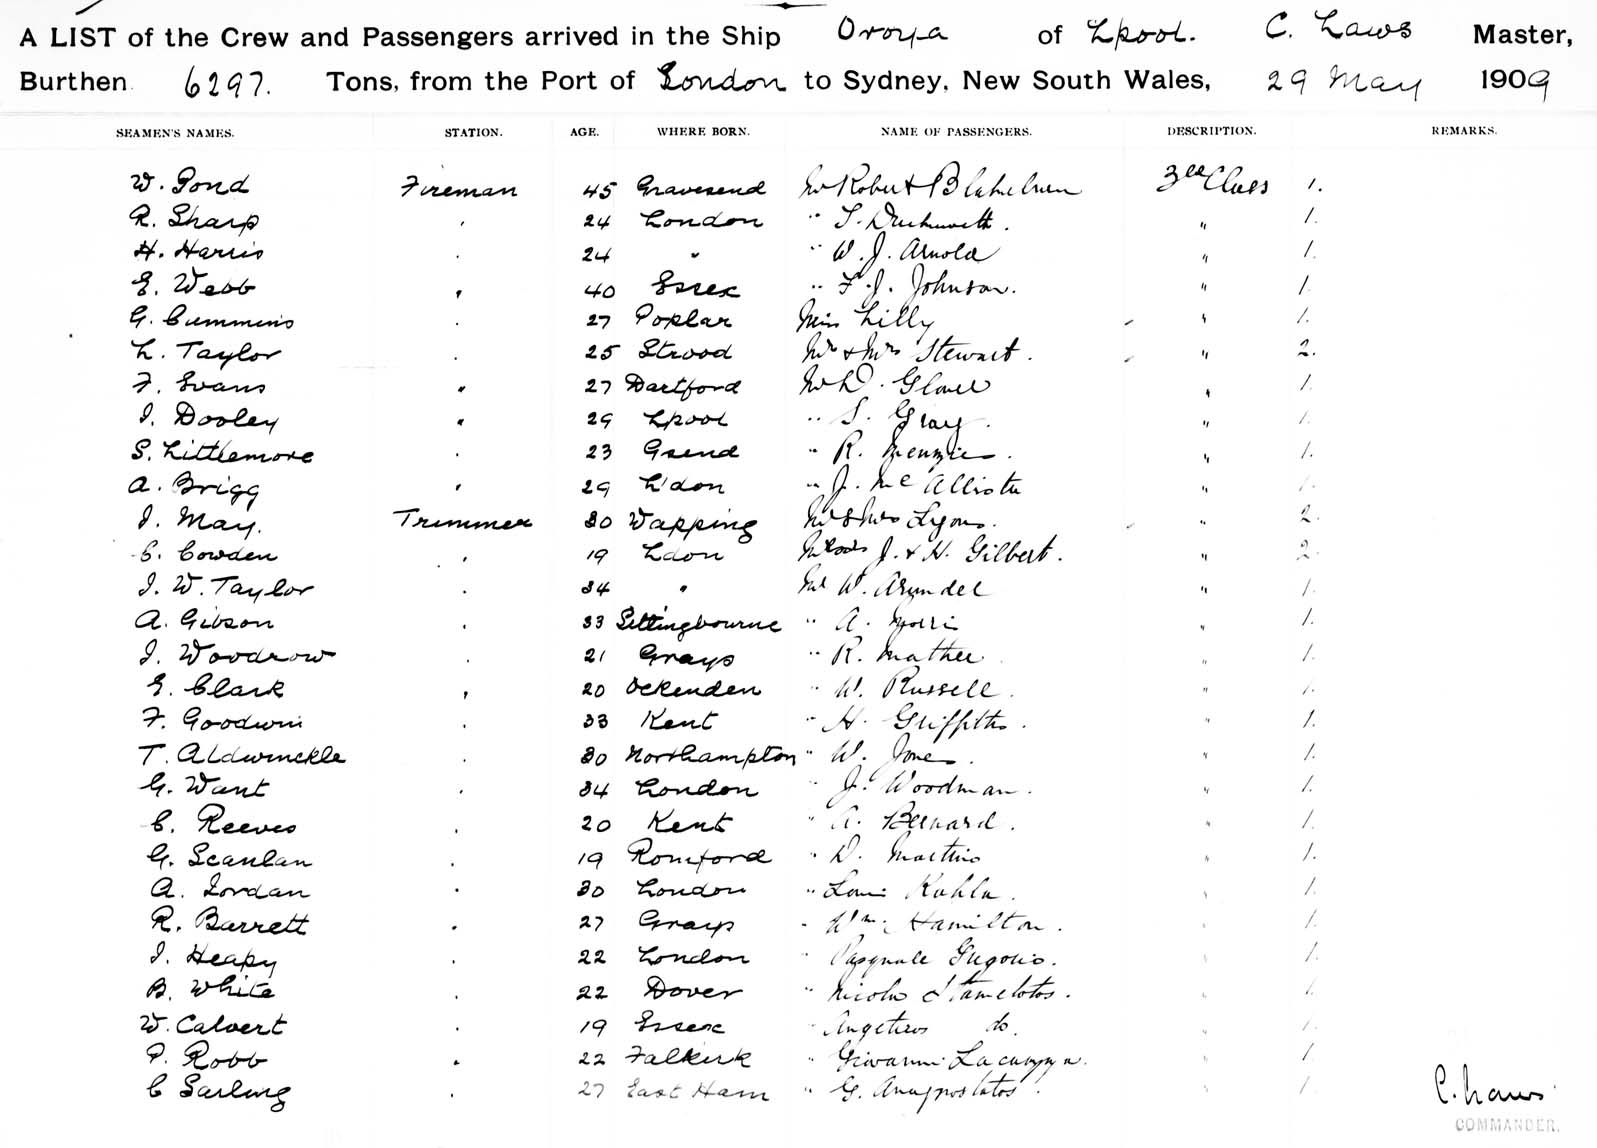 A LIST of the Crew and Passengers arrived in the Ship Oroya of Lpool. C. Laws Master,
Burthen 6297. Tons, from the Port of London to Sydney, New South Wales, 29 May 1909
SEAMEN'S NAMES. STATION. AGE. WHERE BORN. NAME OF PASSENGERS. DESCRIPTION. REMARKS.
W. Pond Fireman 45 Gravesend Mr Robert 3rd Class 1.
R. Sharp " 24 London " " 1.
H. Harris " 24 " " W. J. Arnold " 1.
E. Webb " 40 Essex " F. J. Johnson. " 1.
G. Cummins " 27 Poplar Miss Lilly " 1.
L. Taylor " 25 Strood Mr & Mrs Stewart. " 2.
F. Evans " 27 Dartford Mr D. Glover " 1.
J. Dooley " 29 Lpool " S. Gray. " 1.
S. Littlemore " 23 Gsend " R. Menzies. " 1.
A. Brigg " 29 L'don " J. McAllister " 1.
J. May. Trimmer 30 Wapping Mr & Mrs Lyons. " 2.
C. Cowden " 19 Ldon J. & H. Gilbert. " 2.
J. W. Taylor " 34 " Mr W. Arundel " 1.
A. Gibson " 33 Sittingbourne " A. Morris " 1.
J. Woodrow " 21 Grays " R. Mather " 1.
E. Clark " 20 Ockenden " W. Russell. " 1.
F. Goodwin " 33 Kent " H. Griffiths. " 1.
T. Aldwinckle " 30 Northampton " W. Jones. " 1.
G. Want " 34 London " J. Woodman. " 1.
C. Reeves " 20 Kent " A. Bernard. " 1.
G. Scanlan " 19 Romford " D. Martins " 1.
A. Jordan " 30 London " Louis " 1.
R. Barrett " 27 Grays " Wm. Hamilton. " 1.
J. Heapy " 22 London " Pasquale " 1.
B. White " 22 Dover " Nicolas Stamelotos. " 1.
W. Calvert " 19 Essex " do. " 1.
P. Robb " 22 Falkirk " Giovanni " 1.
C Sarling " 27 East Ham " G. Anagnostatos. " 1.
C. Laws
COMMANDER.